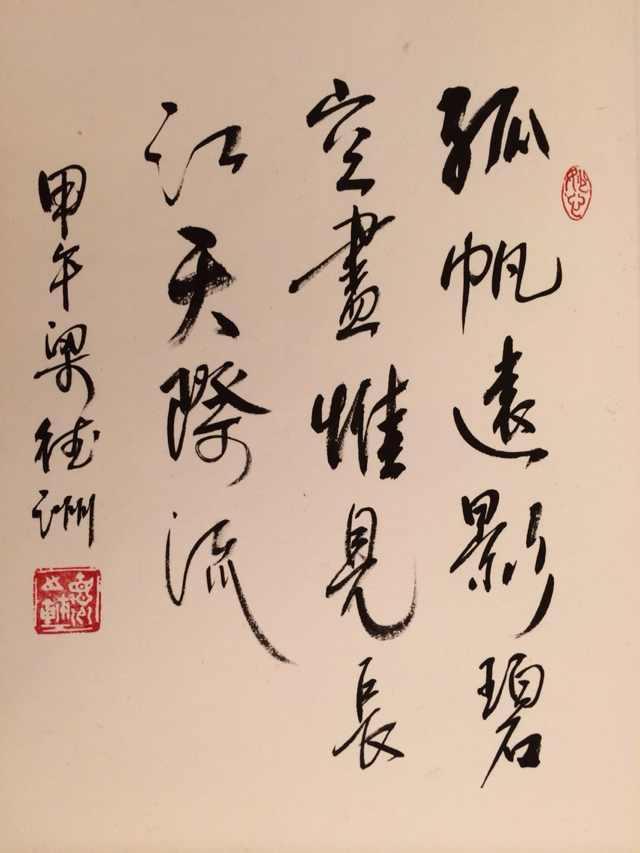 孤帆遠影碧
空盡惟見長
江天際流
甲午梁德洲